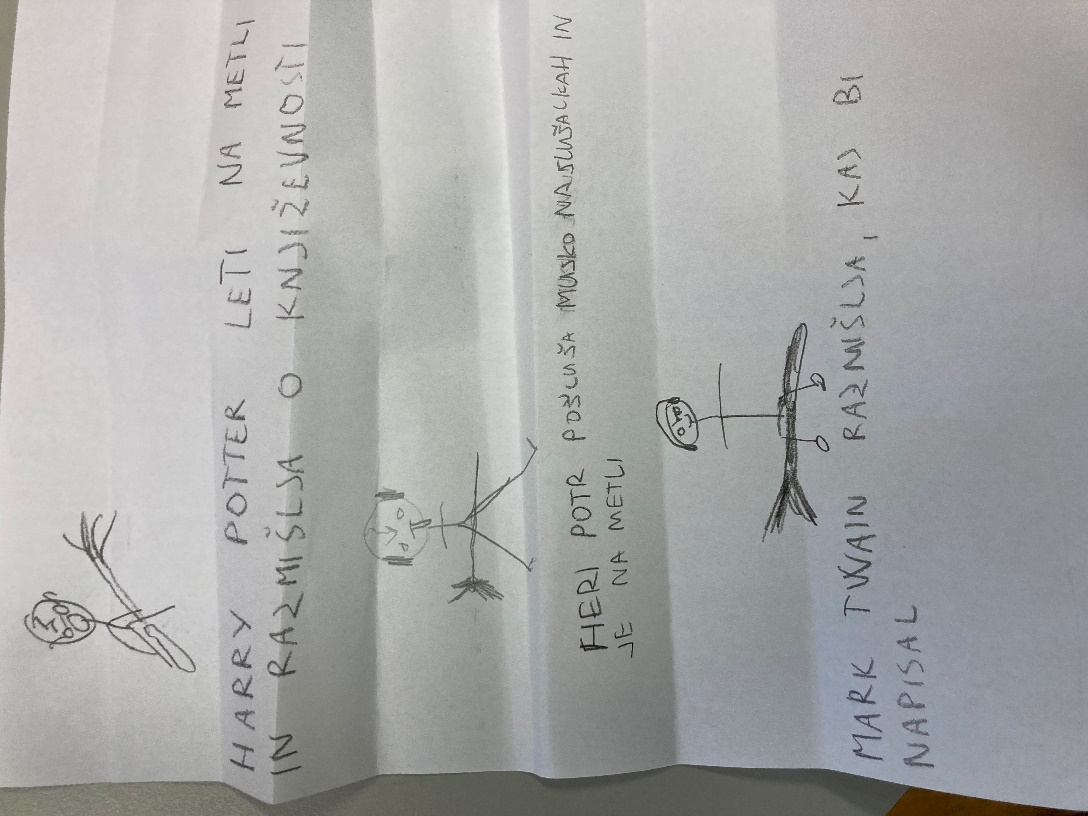 HARRY POTTER LETI NA METLI
IN RAZMIŠLJA O KNJIŽEVNOSTI
HERI POTR POŠLUŠA MUSKO NA SLUŠALKAH IN
JE NA METLI
MARK TWAIN RAZMIŠLJA, KAJ BI
NAPISAL